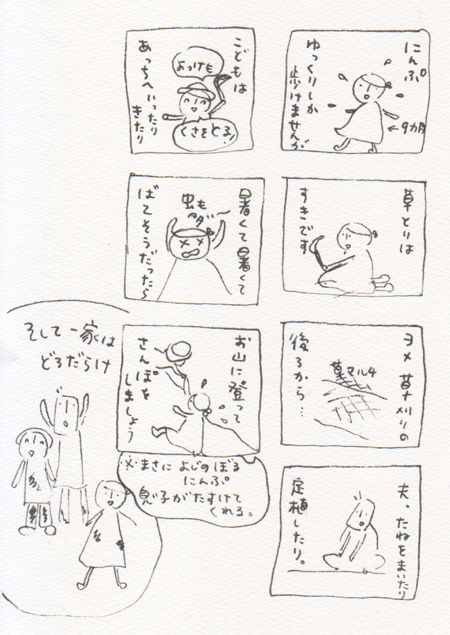 にんぷ
ゆっくりしか
歩けませんが
←9カ月
草とりは
すきです
ヨメ 草刈りの
草マルチ
後ろから…
夫、たねをまいたり
定植したり。
こどもは
くさをとる!
あっちへいったり
きたり
暑くて暑くて
虫も
ばてそうだったら
お山に登って
さんぽを
しましょう
※まさによじのぼる
にんぷ
息子がたすけて
くれる。
そして一家は
どろだらけ